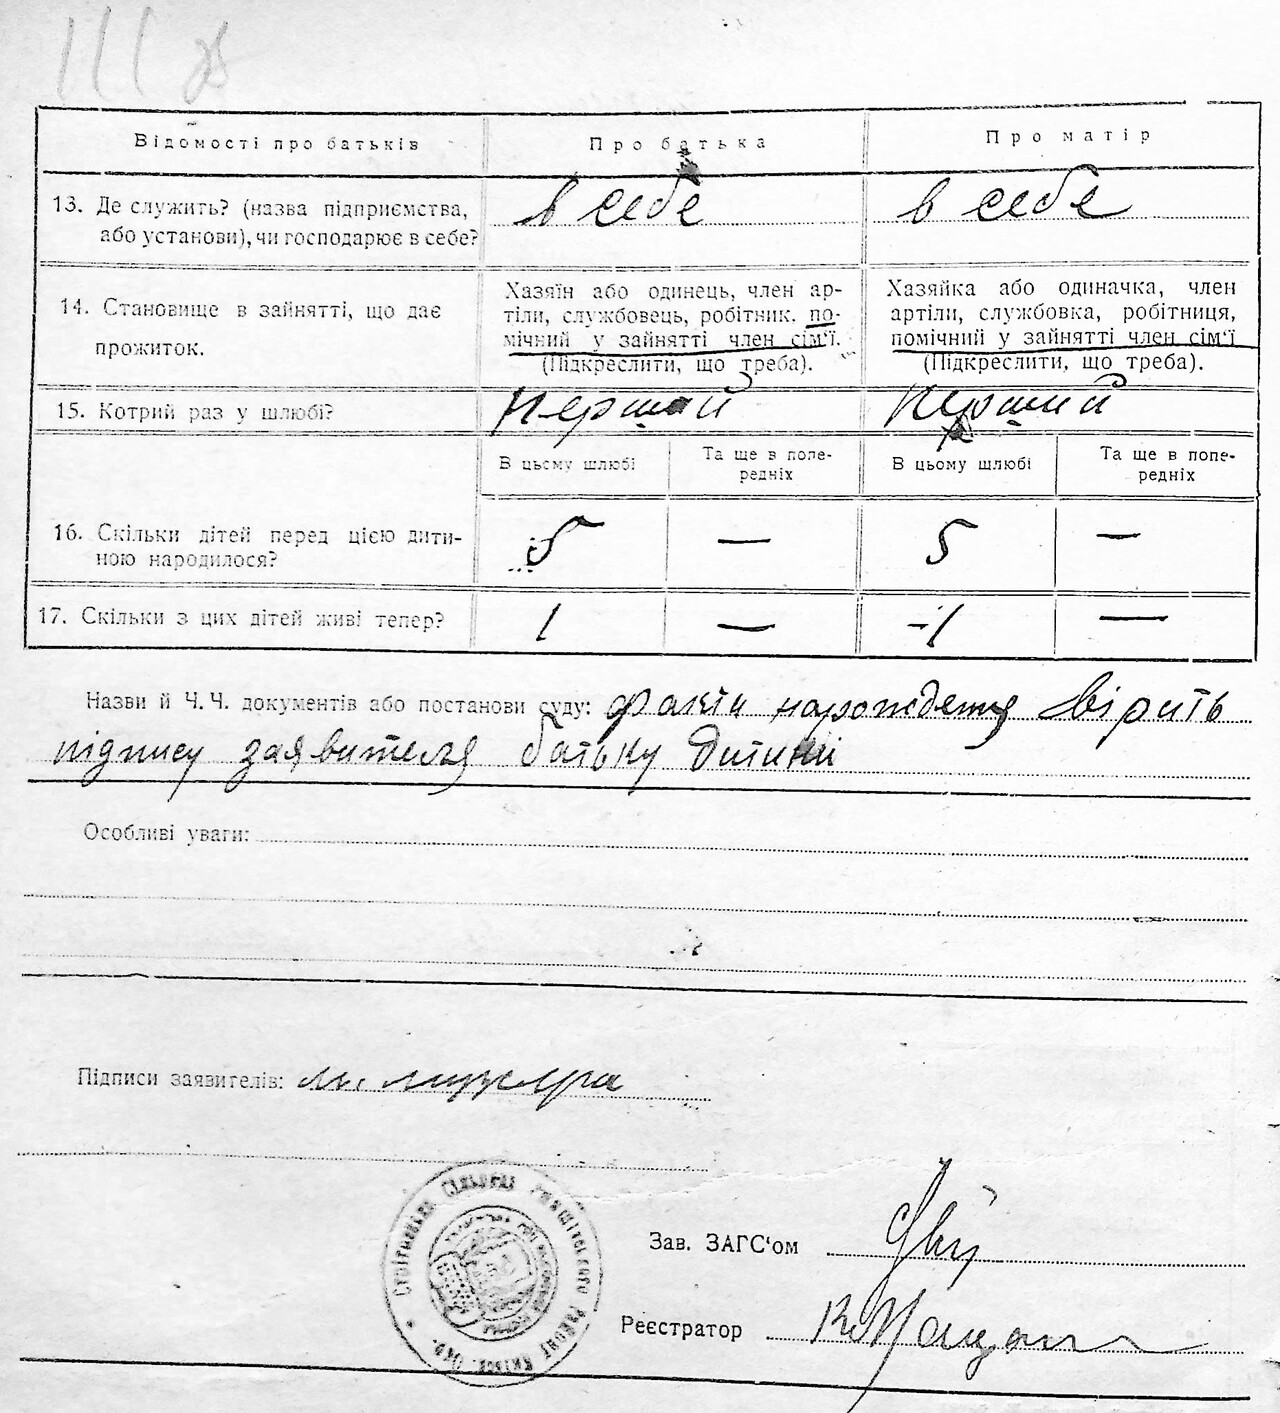 Відомості про батьків
Про батька
Про матір
13. Де служить? (назва підприємства,
або установи), чи господарює в себе?
в себе
в себе
14. Становище в зайнятті, що дає
прожиток.
Хазяїн або одинець, член ар-
тіли, службовець, робітник, по-
мічний у зайнятті член сім'ї.
(Підкреслити, що треба).
Хазяйка або одиначка, член
артіли, службовка, робітниця,
помічний у зайнятті член сім'ї
(Підкреслити, що треба).
15. Котрий раз у шлюбі?
Перший
Перший
В цьому шлюбі
Та ще в попе-
редніх
В цьому шлюбі
Та ще в попе-
редніх
16. Скільки дітей перед цією дити-
ною народилося?
5
—
5
—
17. Скільки з цих дітей живі тепер?
1
—
1
—
Назви й Ч. Ч. документів або постанови суду: факти нарождення вірить
підпису заявителя батьку дитини
Особливі уваги:
Підписи заявителів: м.
Зав. ЗАГС'ом
Реєстратор